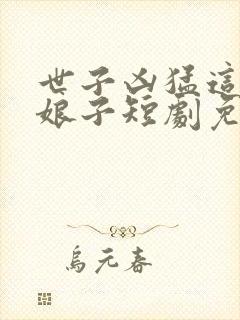 世子凶猛這
娘子短劇免
烏元春